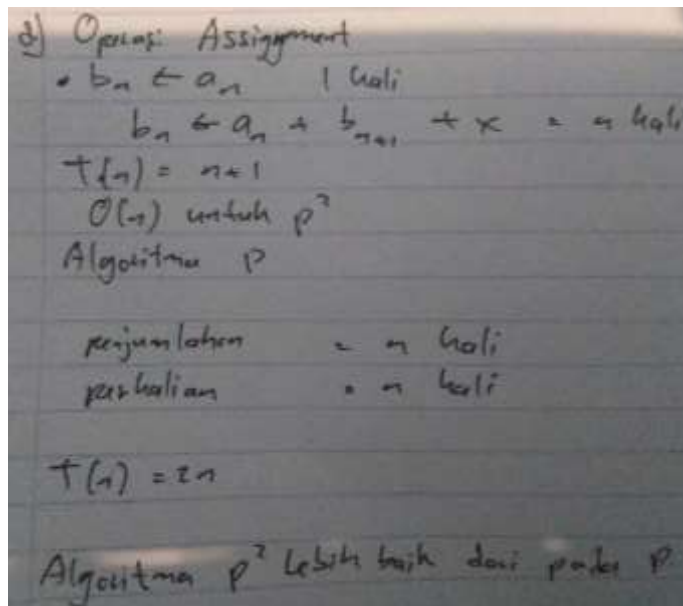 d) Operasi Assignment
• bn ← an 1 kali
bn ← an + bn+1 + x = n kali
T(n) = n+1
O(n) untuk p²
Algoritma p
penjumlahan = n kali
perkalian = n kali
T(n) = 2n
Algoritma p² lebih baik dari pada p